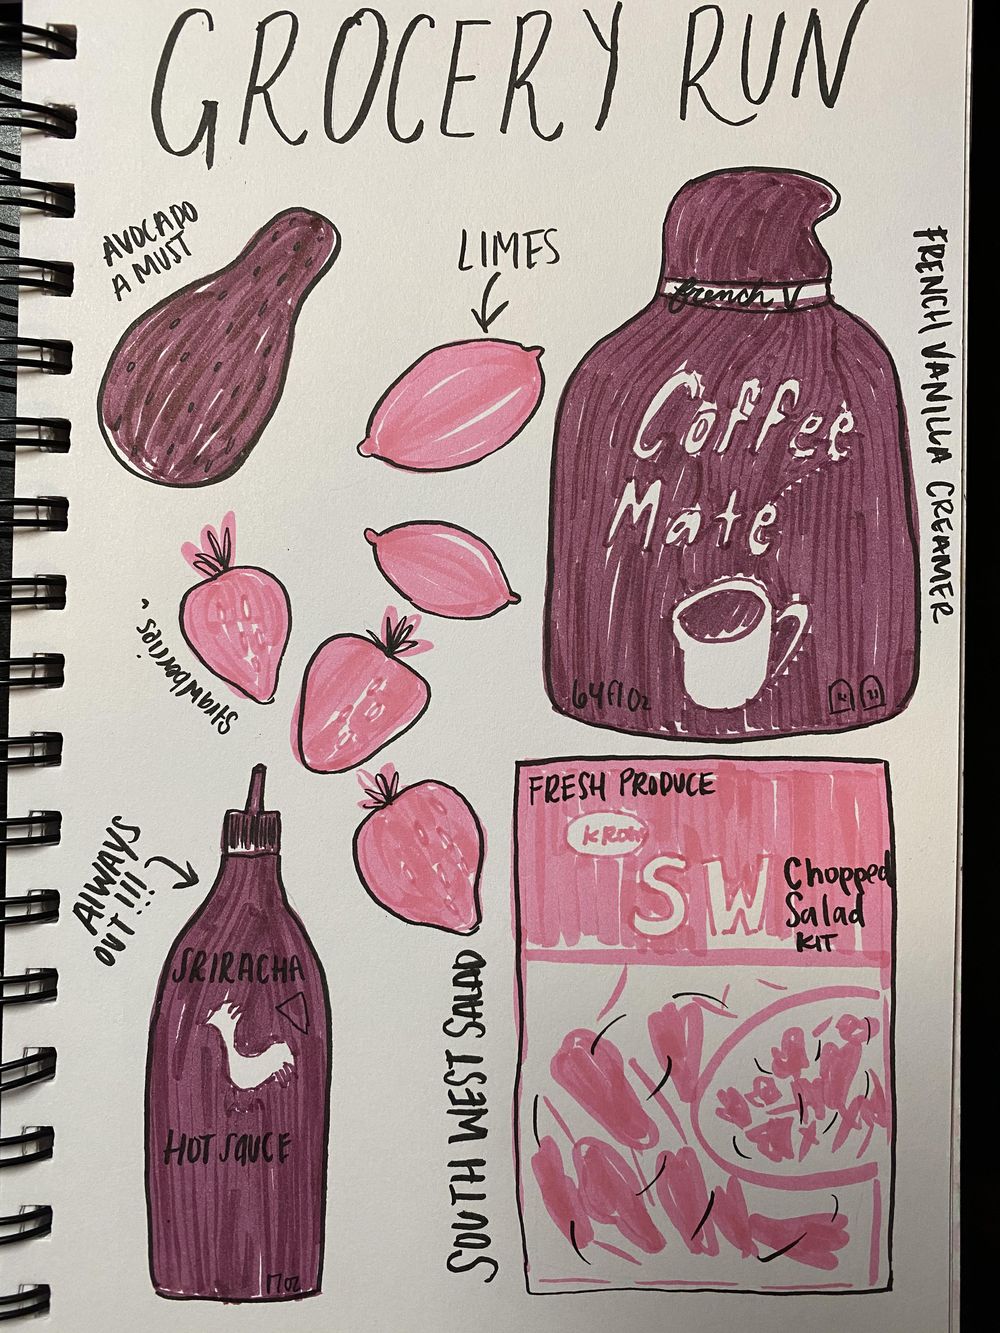 GROCERY RUN
AVOCADO
A MUST
LIMES
french V
Coffee
Mate
64 fl oz
FRENCH VANILLA CREAMER
strawberries
ALWAYS
OUT!!!
SRIRACHA
HOT SAUCE
17 oz
SOUTH WEST SALAD
FRESH PRODUCE
SW
Chopped
Salad
KIT